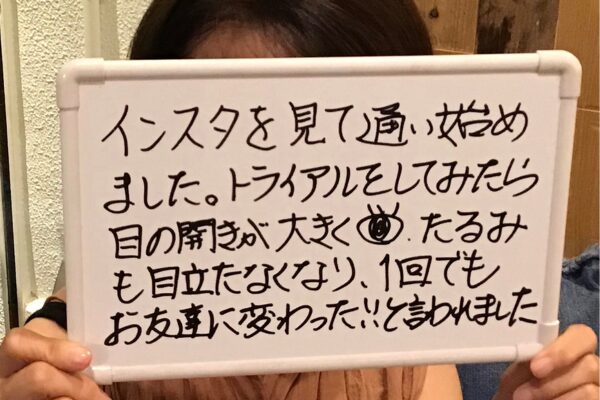 インスタを見て通い始め
ました。トライアルをしてみたら
目の開きが大きく👁.たるみ
も目立たなくなり、1回でも
お友達に変わった!!と言われました